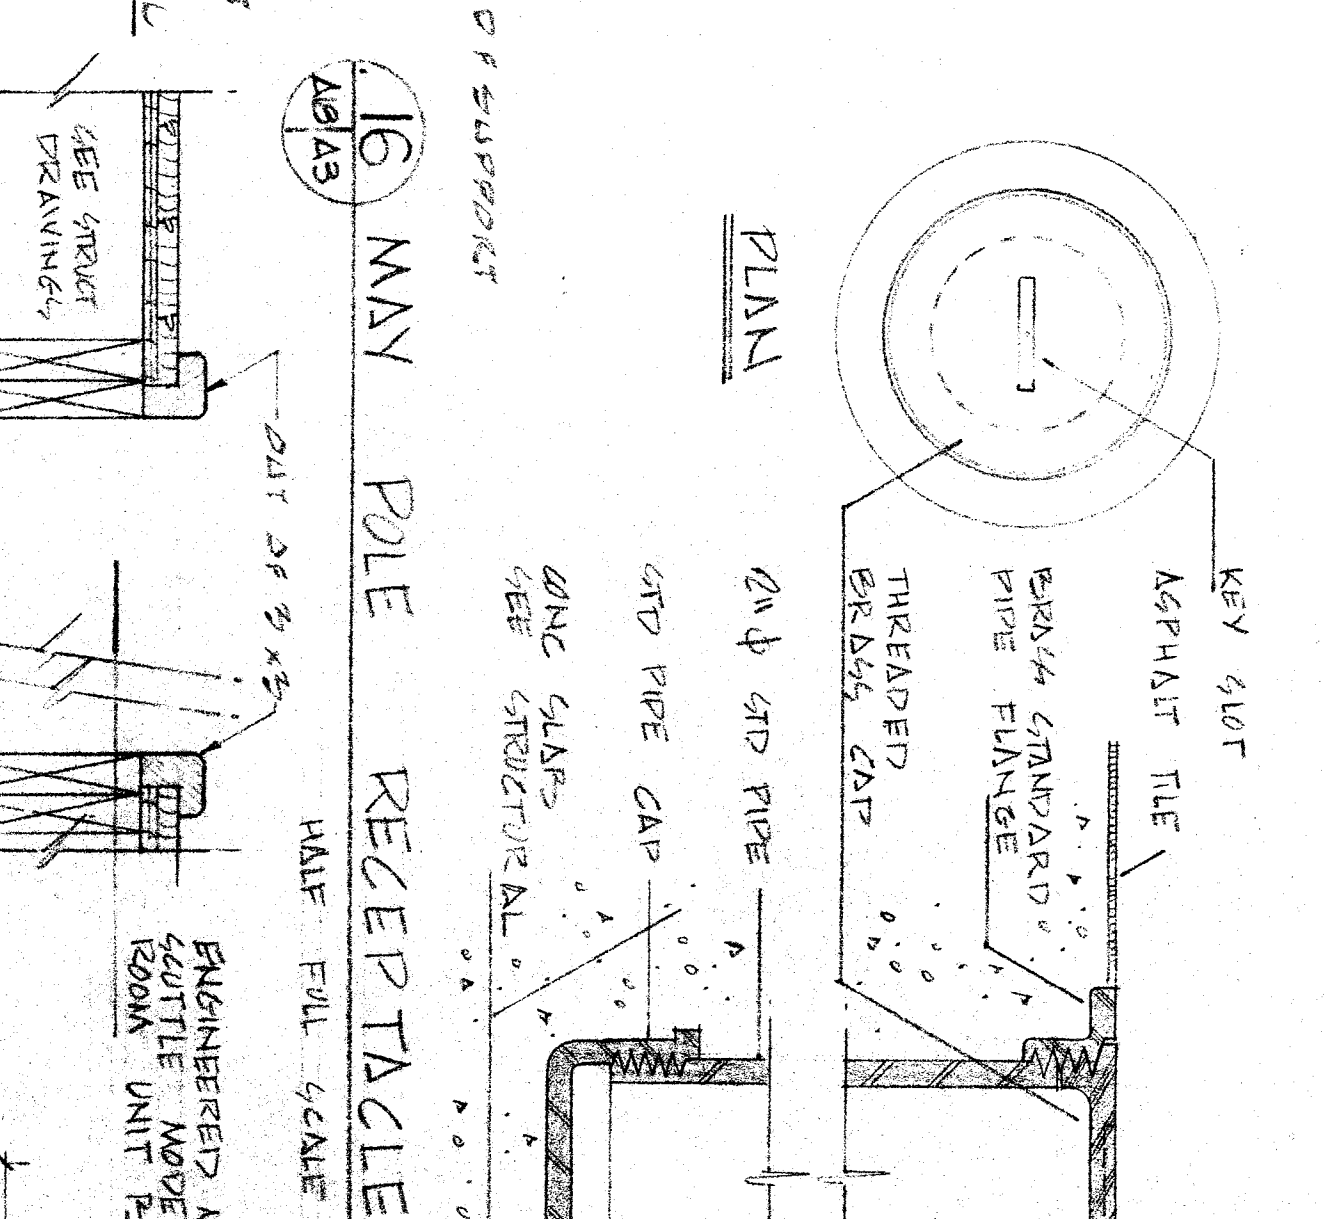 PLAN
KEY SLOT
ASPHALT TILE
BRASS STANDARD
PIPE FLANGE
THREADED
BRASS CAP
2"ϕ STD PIPE
STD PIPE CAP
CONC SLABS
SEE STRUCTURAL
OF SUPPORT
16
A8 A3
MAY POLE RECEPTACLE
HALF FULL SCALE
OUT OF 3x3
SEE STRUCT
DRAWINGS
ENGINEERED
SCUTTLE
ROOM UNIT